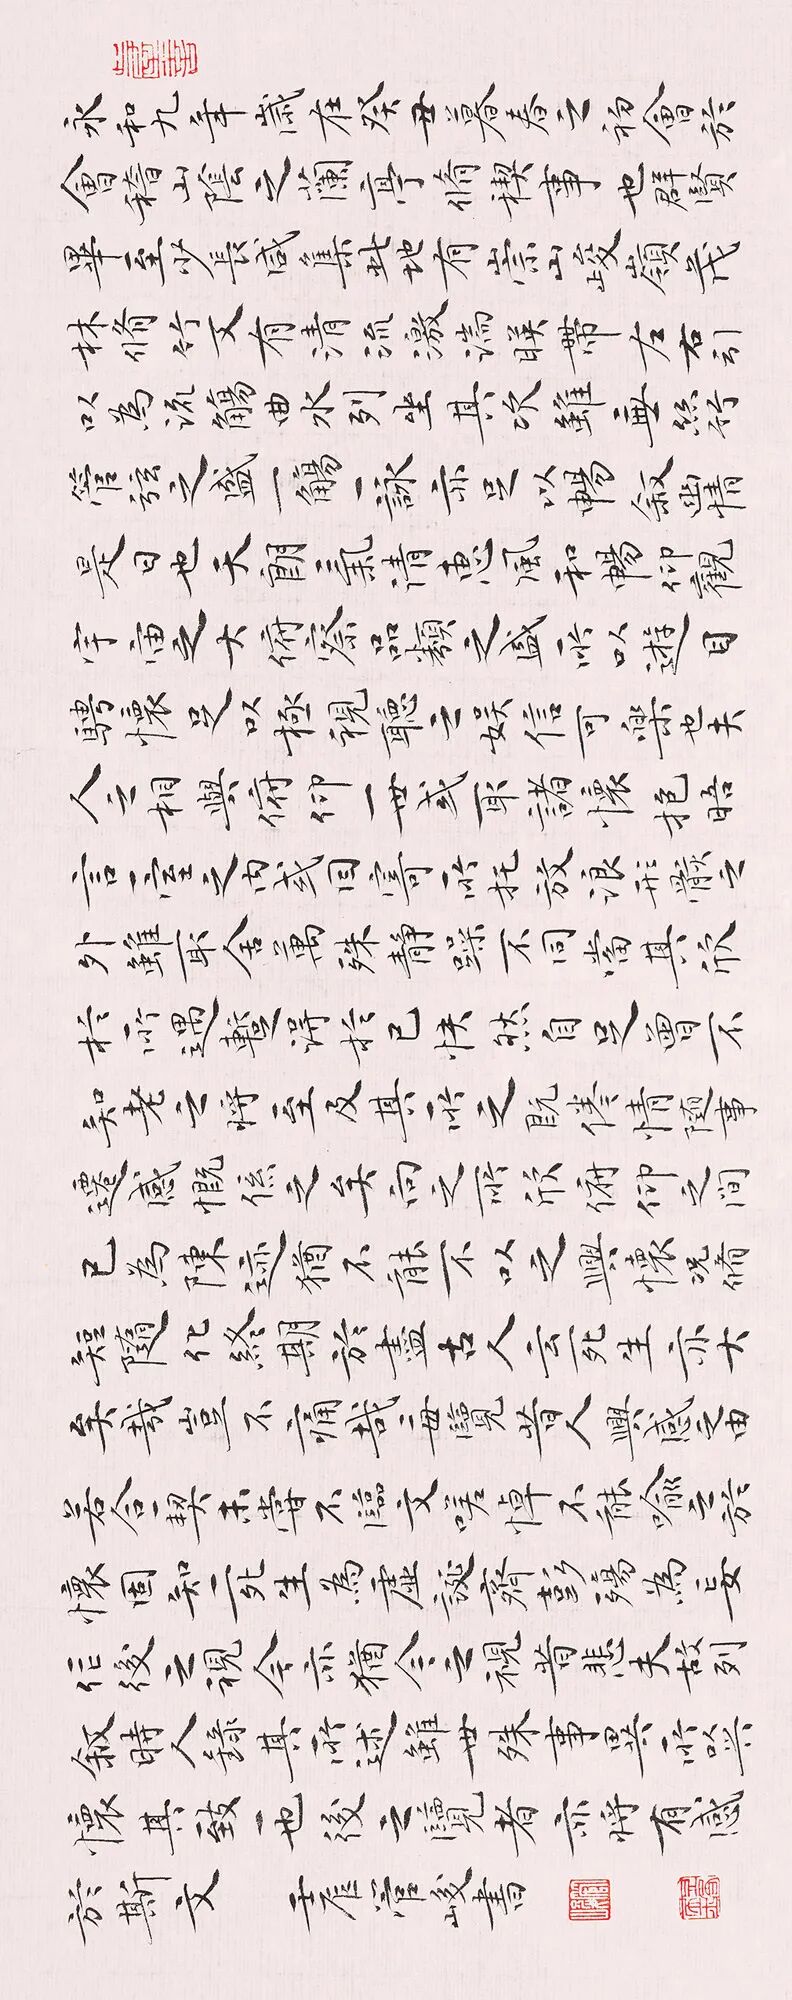 永和九年歲在癸丑暮春之初會於
會稽山陰之蘭亭脩禊事也群賢
畢至少長咸集此地有崇山峻嶺茂
林脩竹又有清流激湍暎帶左右引
以為流觴曲水列坐其次雖無絲竹
管弦之盛一觴一詠亦足以暢敘幽情
是日也天朗氣清惠風和暢仰觀
宇宙之大俯察品類之盛所以遊目
騁懷足以極視聽之娛信可樂也夫
人之相與俯仰一世或取諸懷抱晤
言一室之內或因寄所托放浪形骸之
外雖取舍萬殊靜躁不同當其欣
於所遇暫得於己快然自足曾不
知老之將至及其所之既惓情隨事
遷感慨係之矣向之所欣俯仰之間
已為陳迹猶不能不以之興懷況脩
短隨化終期於盡古人云死生亦大
矣哉豈不痛哉每覽昔人興感之由
若合一契未嘗不臨文嗟悼不能喻之於
懷固知一死生為虛誕齊彭殤為妄
作後之視今亦猶今之視昔悲夫故列
敘時人錄其所述雖世殊事異所以興
懷其致一也後之覽者亦將有感
於斯文 管峻書